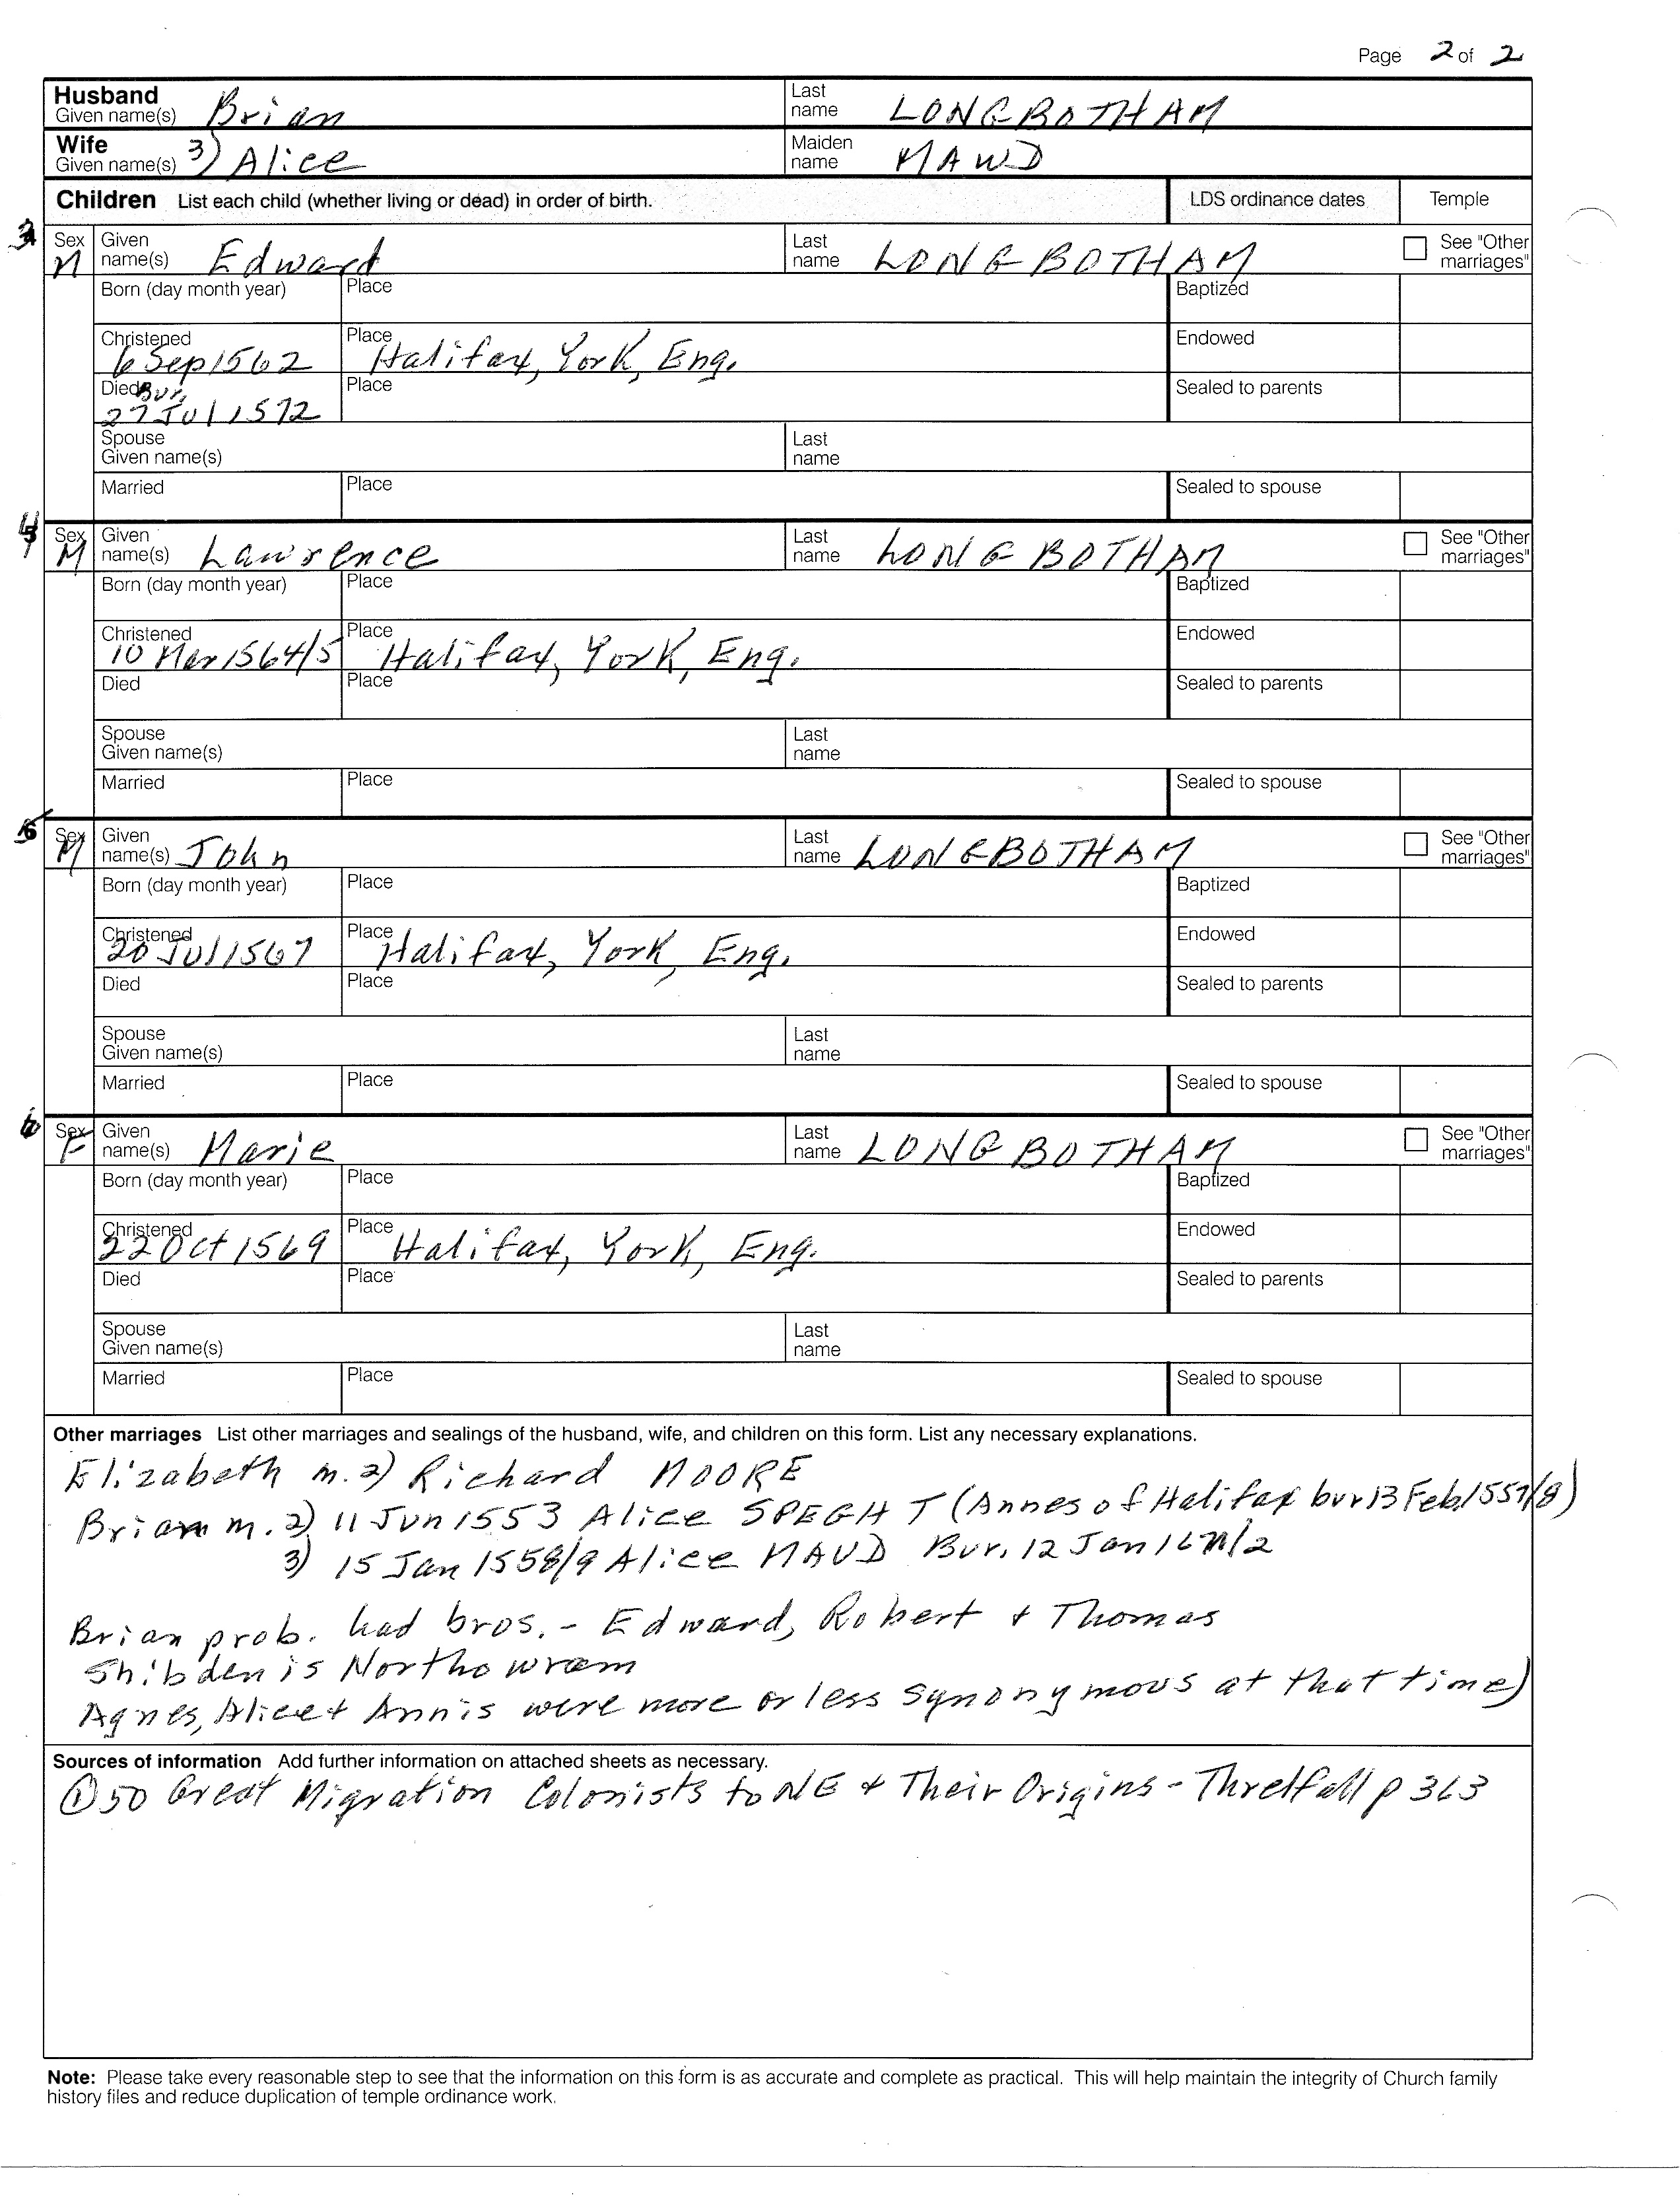 Page 2 of 2
Husband Given name(s) Brian Last name LONGBOTHAM
Wife Given name(s) 3) Alice Maiden name MAWD
Children List each child (whether living or dead) in order of birth. LDS ordinance dates Temple
3 Sex M Given name(s) Edward Last name LONGBOTHAM See "Other marriages"
Born (day month year) Place Baptized
Christened 6 Sep 1562 Place Halifax, York, Eng. Endowed
Died Bur. 27 Jul 1572 Place Sealed to parents
Spouse Given name(s) Last name
Married Place Sealed to spouse
4 Sex M Given name(s) Lawrence Last name LONGBOTHAM See "Other marriages"
Born (day month year) Place Baptized
Christened 10 Mar 1564/5 Place Halifax, York, Eng. Endowed
Died Place Sealed to parents
Spouse Given name(s) Last name
Married Place Sealed to spouse
5 Sex M Given name(s) John Last name LONGBOTHAM See "Other marriages"
Born (day month year) Place Baptized
Christened 20 Jul 1567 Place Halifax, York, Eng. Endowed
Died Place Sealed to parents
Spouse Given name(s) Last name
Married Place Sealed to spouse
6 Sex F Given name(s) Marie Last name LONGBOTHAM See "Other marriages"
Born (day month year) Place Baptized
Christened 22 Oct 1569 Place Halifax, York, Eng. Endowed
Died Place Sealed to parents
Spouse Given name(s) Last name
Married Place Sealed to spouse
Other marriages List other marriages and sealings of the husband, wife, and children on this form. List any necessary explanations.
Elizabeth m. 2) Richard MOORE
Brian m. 2) 11 Jun 1553 Alice SPEGHT (Annes of Halifax bur 13 Feb 1557/8)
3) 15 Jan 1558/9 Alice MAUD Bur. 12 Jan
Brian prob. had bros. - Edward, Robert + Thomas
Shibden is Northowram
Agnes, Alice + Annis were more or less synonymous at that time)
Sources of information Add further information on attached sheets as necessary.
① 50 Great Migration Colonists to NE + Their Origins - Threlfall p 363
Note: Please take every reasonable step to see that the information on this form is as accurate and complete as practical. This will help maintain the integrity of Church family
history files and reduce duplication of temple ordinance work.